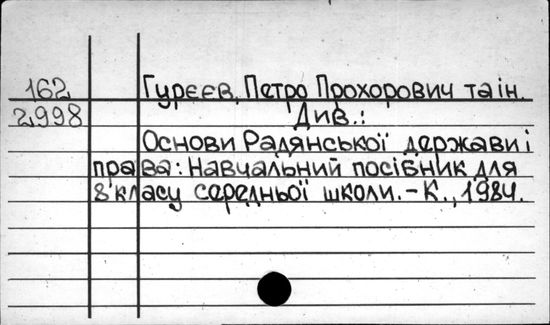 162 Гурєєв, Петро Прохорович та ін.
2998 Див.:
Основи Радянської держави і
права: Навчальний посібник для
8 класу середньої школи. – К., 1984.